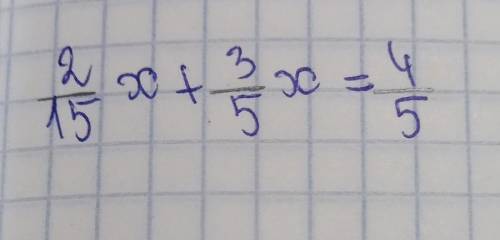 2/15 x + 3/5 x = 4/5